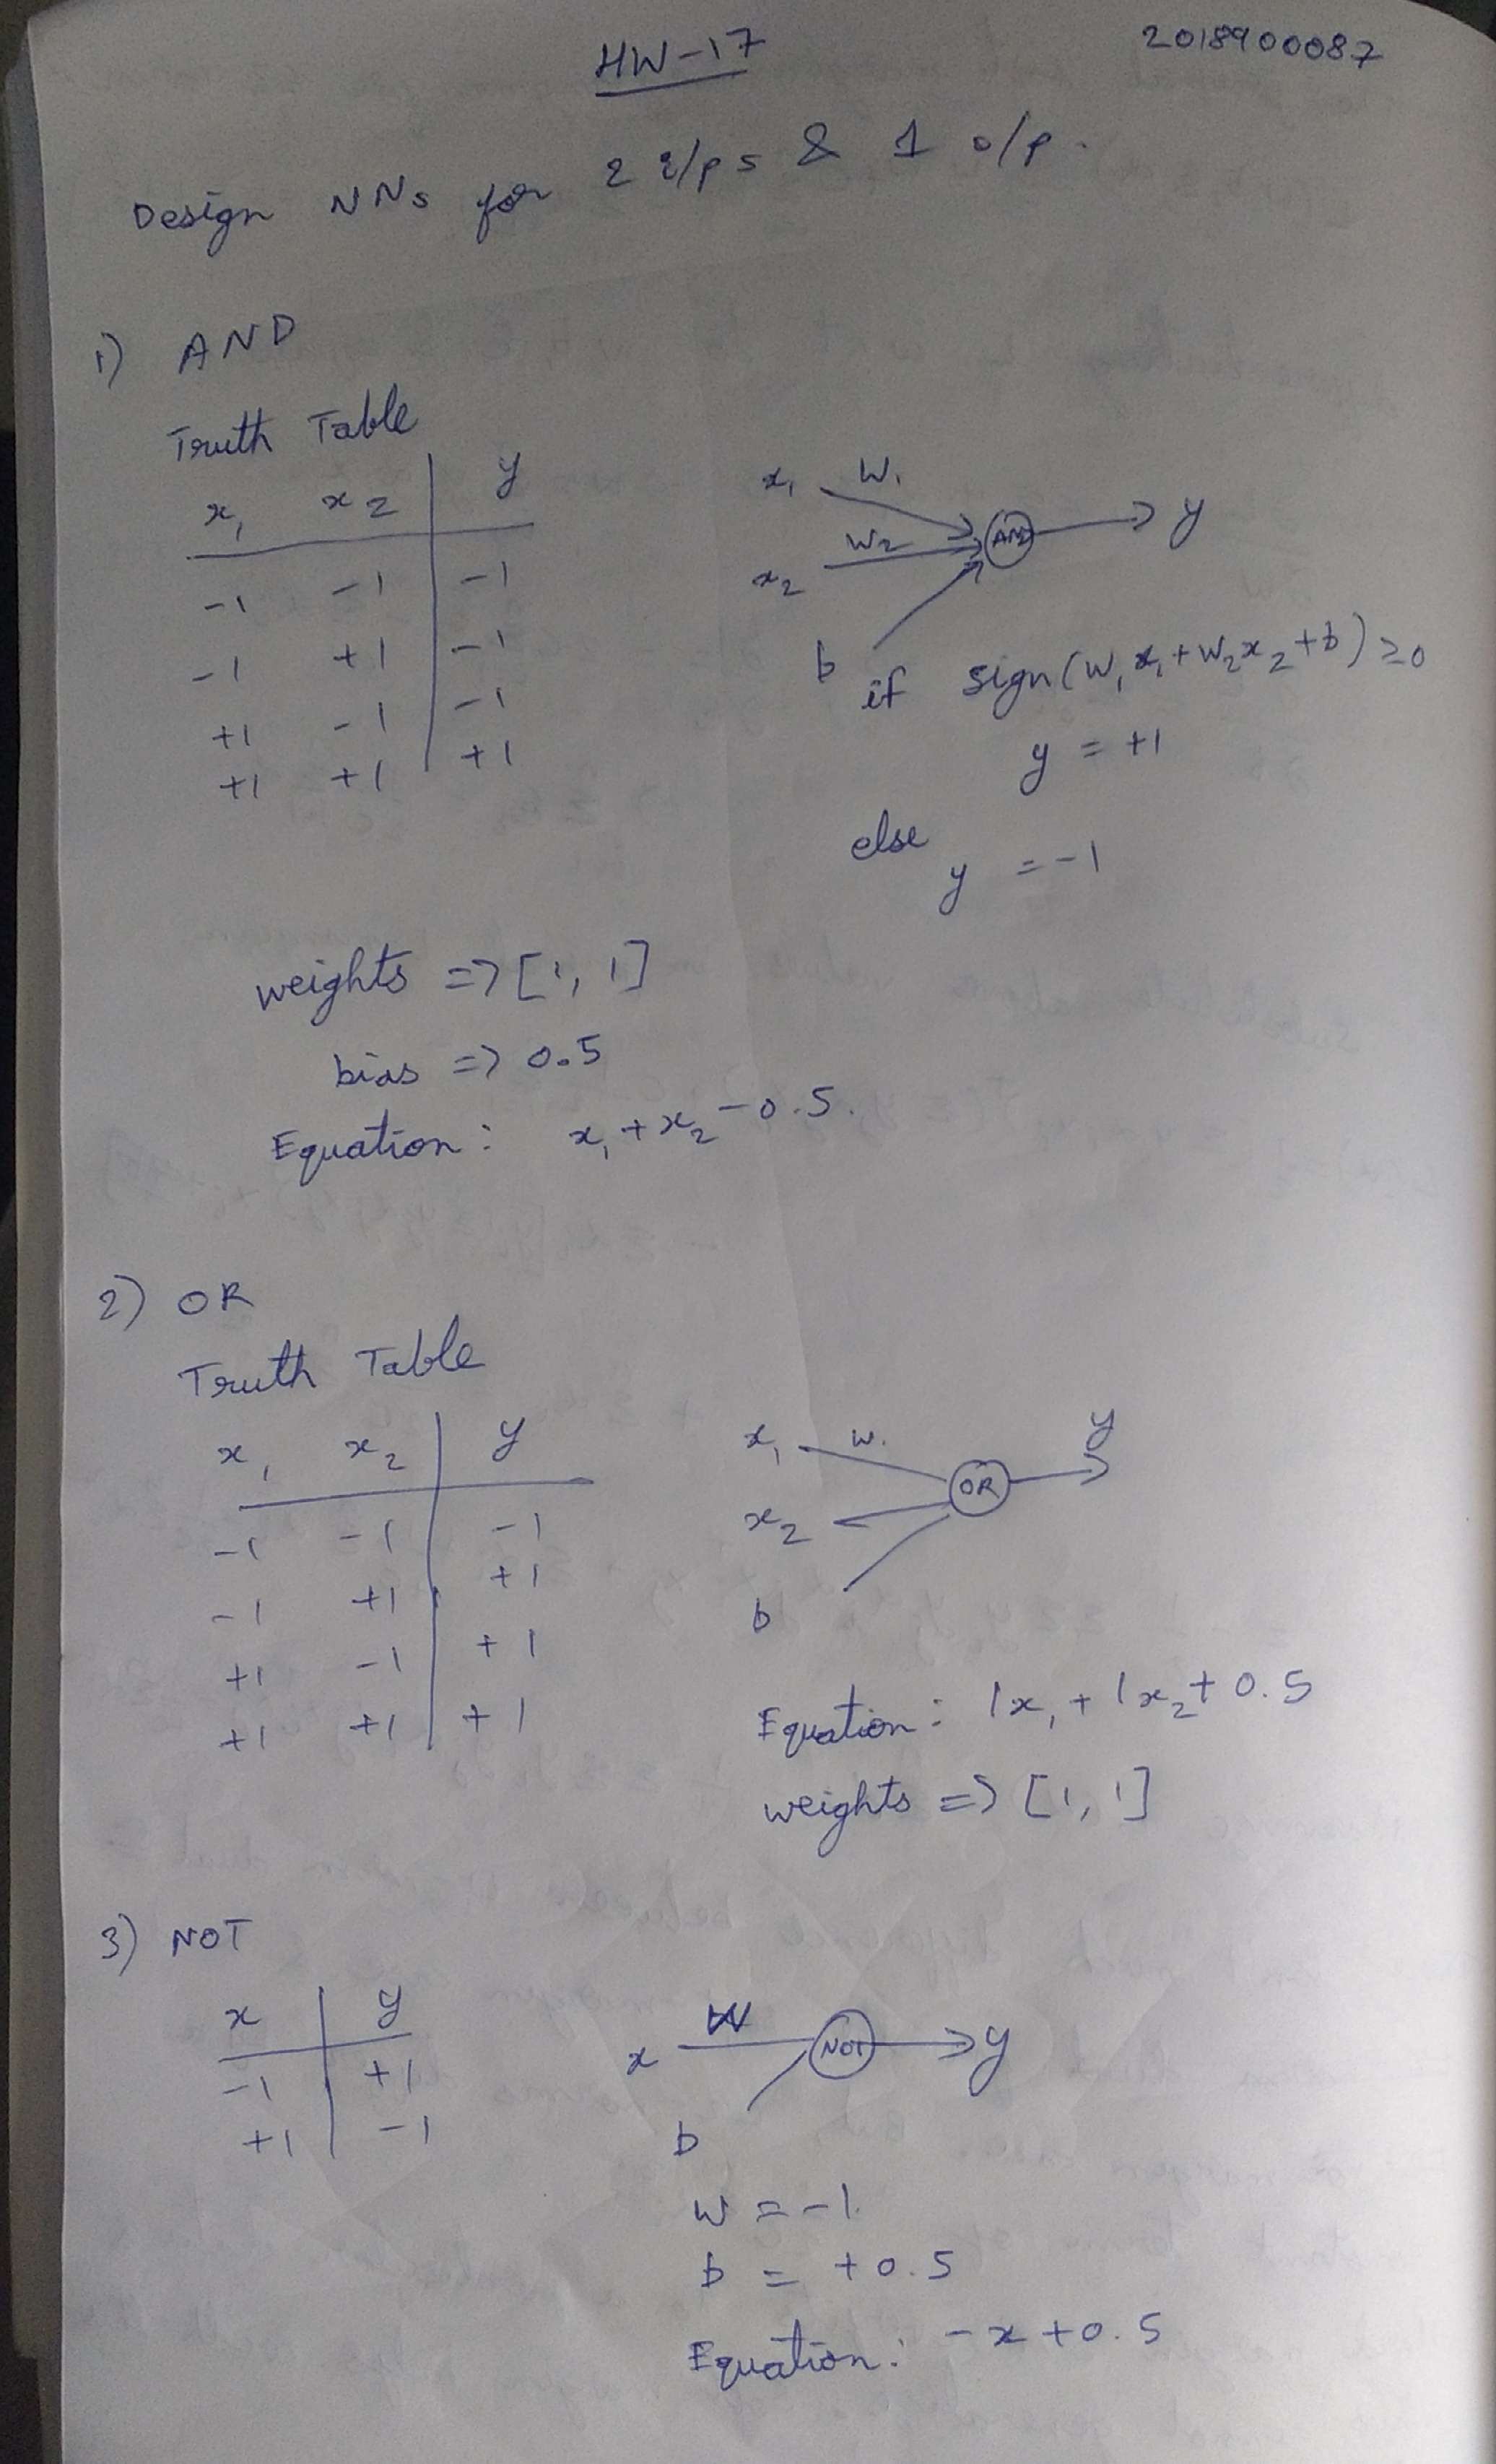 HW-17
2018900087
Design NNs for 2 i/ps & 1 o/p.
1) AND
Truth Table
x₁ x₂ | y
-1 -1 | -1
-1 +1 | -1
+1 -1 | -1
+1 +1 | +1
x₁ W₁
AND y
x₂ W₂
b
if sign(W₁x₁+W₂x₂+b)≥0
y = +1
else
y = -1
weights => [1, 1]
bias => 0.5
Equation: x₁+x₂-0.5.
2) OR
Truth Table
x₁ x₂ | y
-1 -1 | -1
-1 +1 | +1
+1 -1 | +1
+1 +1 | +1
x₁ W₁
OR y
x₂
b
Equation: 1x₁+1x₂+0.5
weights => [1, 1]
3) NOT
x | y
-1 | +1
+1 | -1
x W NOT y
b
W = -1
b = +0.5
Equation: -x+0.5